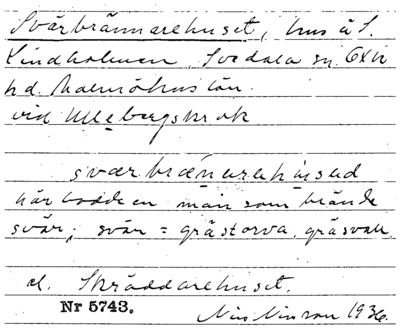 Svärbrännarehuset, hus å S.
Lindholmen, Svedala sn. Oxie
hd. Malmöhus län.
vid Ullebergskrok
svær brænarehused
här bodde en man som brände
svär; svär = grästorva, gräsvall.
el. Skräddarehuset.
Nr 5743.
1936.